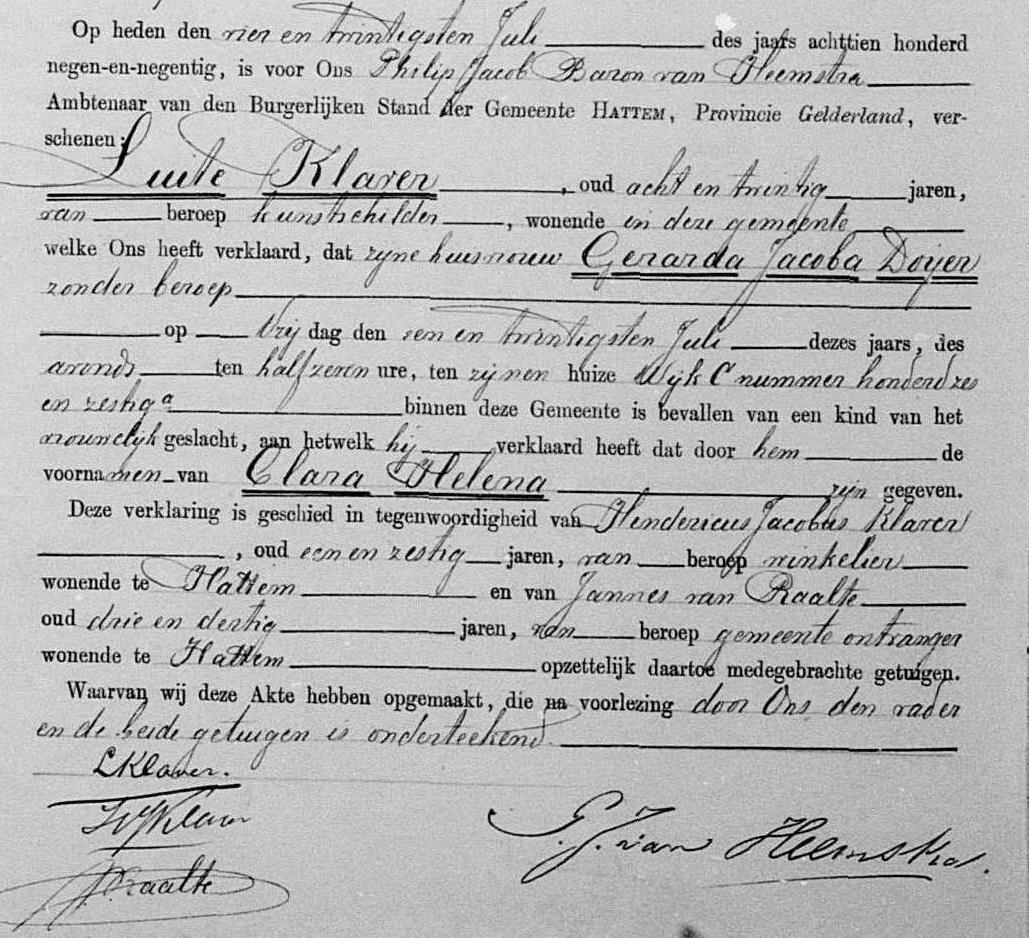 Op heden den vier en twintigsten Juli des jaars achttien honderd
negen-en-negentig, is voor Ons Philip Jacob Baron van Heemstra
Ambtenaar van den Burgerlijken Stand der Gemeente HATTEM, Provincie Gelderland, ver-
schenen:
Luite Klaver, oud acht en twintig jaren,
van beroep kunstschilder, wonende in deze gemeente
welke Ons heeft verklaard, dat zijne huisvrouw Gerarda Jacoba Doijer
zonder beroep
op Vrijdag den een en twintigsten Juli dezes jaars, des
avonds ten half zeven ure, ten zijnen huize Wijk C nummer honderd zes
en zestig a binnen deze Gemeente is bevallen van een kind van het
vrouwelijk geslacht, aan hetwelk hij verklaard heeft dat door hem de
voornamen van Clara Helena zijn gegeven.
Deze verklaring is geschied in tegenwoordigheid van Hendericus Jacobus Klaver
, oud een en zestig jaren, van beroep winkelier
wonende te Hattem en van Jannes van Raalte
oud drie en dertig jaren, van beroep gemeente ontvanger
wonende te Hattem opzettelijk daartoe medegebrachte getuigen.
Waarvan wij deze Akte hebben opgemaakt, die na voorlezing door Ons den vader
en de beide getuigen is onderteekend.
L Klaver.
HJ Klaver
P. J. van Heemstra.
JvRaalte